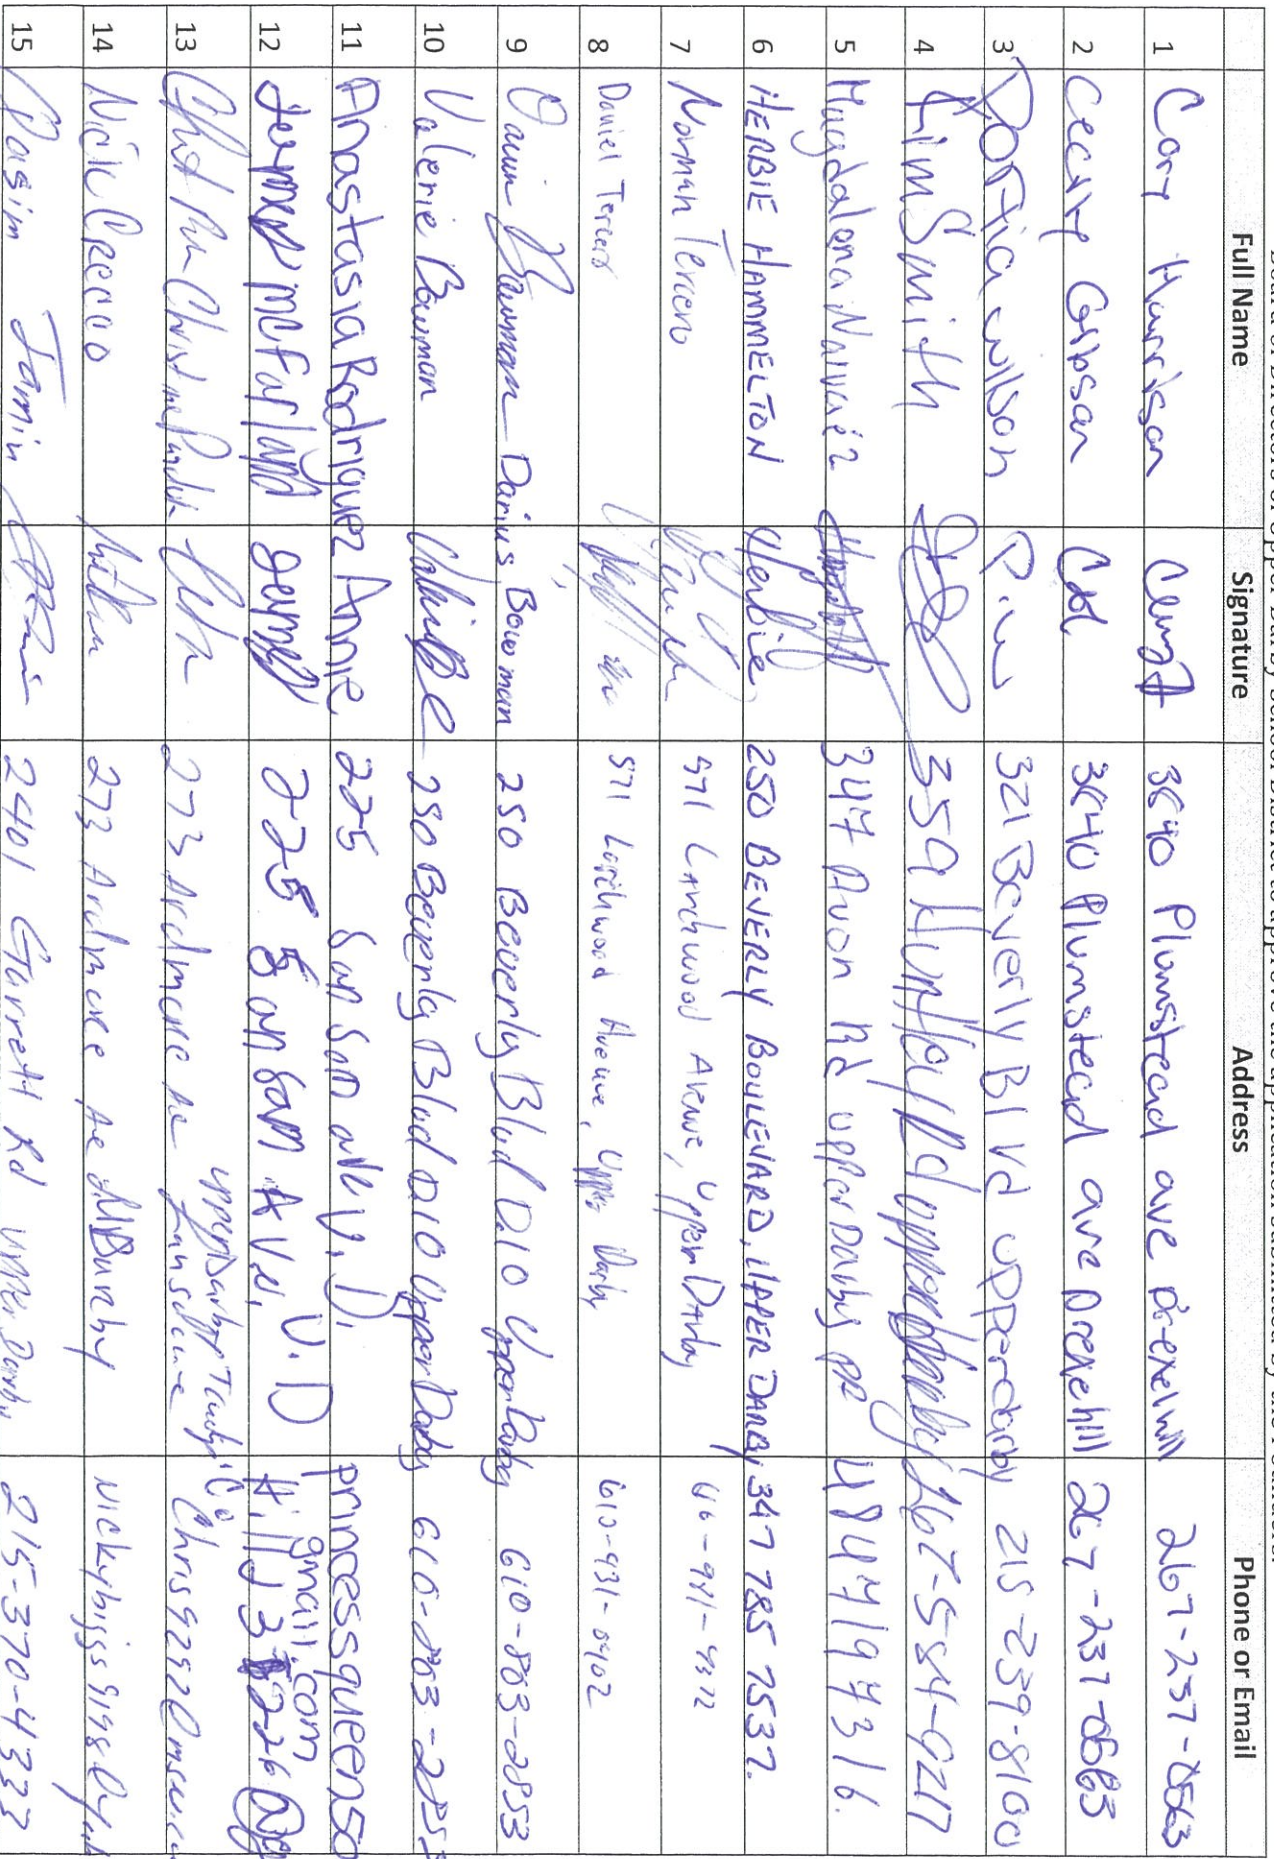 Board of Directors of Upper Darby School District to approve the application submitted by the Founders.
Full Name Signature Address Phone or Email
1 Cory Harrison 3640 Plumstead ave drexel hill 267-237-0563
2 Cecily Gibson 3640 Plumstead ave drexel hill 267-237-0563
3 Portia Wilson P. W 321 Beverly Blvd upper darby 215-239-8100
4 Kim Smith 359 Hampden Rd upper darby 267-584-9217
5 Magdalena Narvaez 347 Avon Rd upper Darby pa 4847197316.
6 HERBIE HAMMELTON Herbie 250 BEVERLY BOULEVARD, UPPER DARBY 347 785 7537.
7 Norman Tercero 571 Larchwood Avenue, Upper Darby
8 Daniel Tercero 571 Larchwood Avenue, Upper Darby 610-931-0902
9 Darius Bowman Darius Bowman 250 Beverly Blvd D.10 Upper Darby 610-803-2853
10 Valerie Bowman 250 Beverly Blvd D10 Upper Darby 610-803-2853
11 Anastasia Rodriguez Annie 225 Sanson ave U.D. princessqueen50
gmail.com
12 Jermel McFarland Jermel 225 Sansom Ave. U.D
13 Christine 273 Ardmore Ave Upper Darby Lansdowne Chris9292@msn.com
14 Nick Crecco 273 Ardmore Ave
15 Jamin 2401 Garrett Rd Upper Darby 215-370-4333